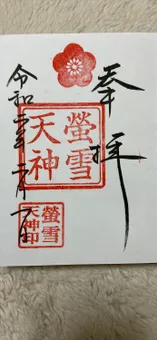 奉拝
螢雪
天神
螢雪
天神印
令和二年二月一日